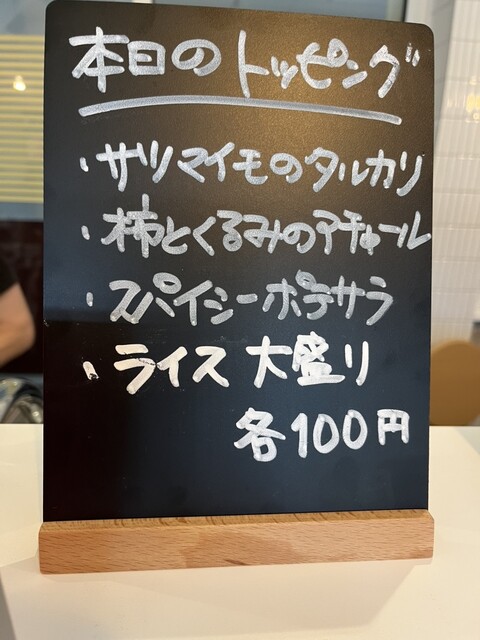 本日のトッピング
・サツマイモのタルカリ
・柿とくるみのアチャール
・スパイシーポテサラ
・ライス大盛り
各100円